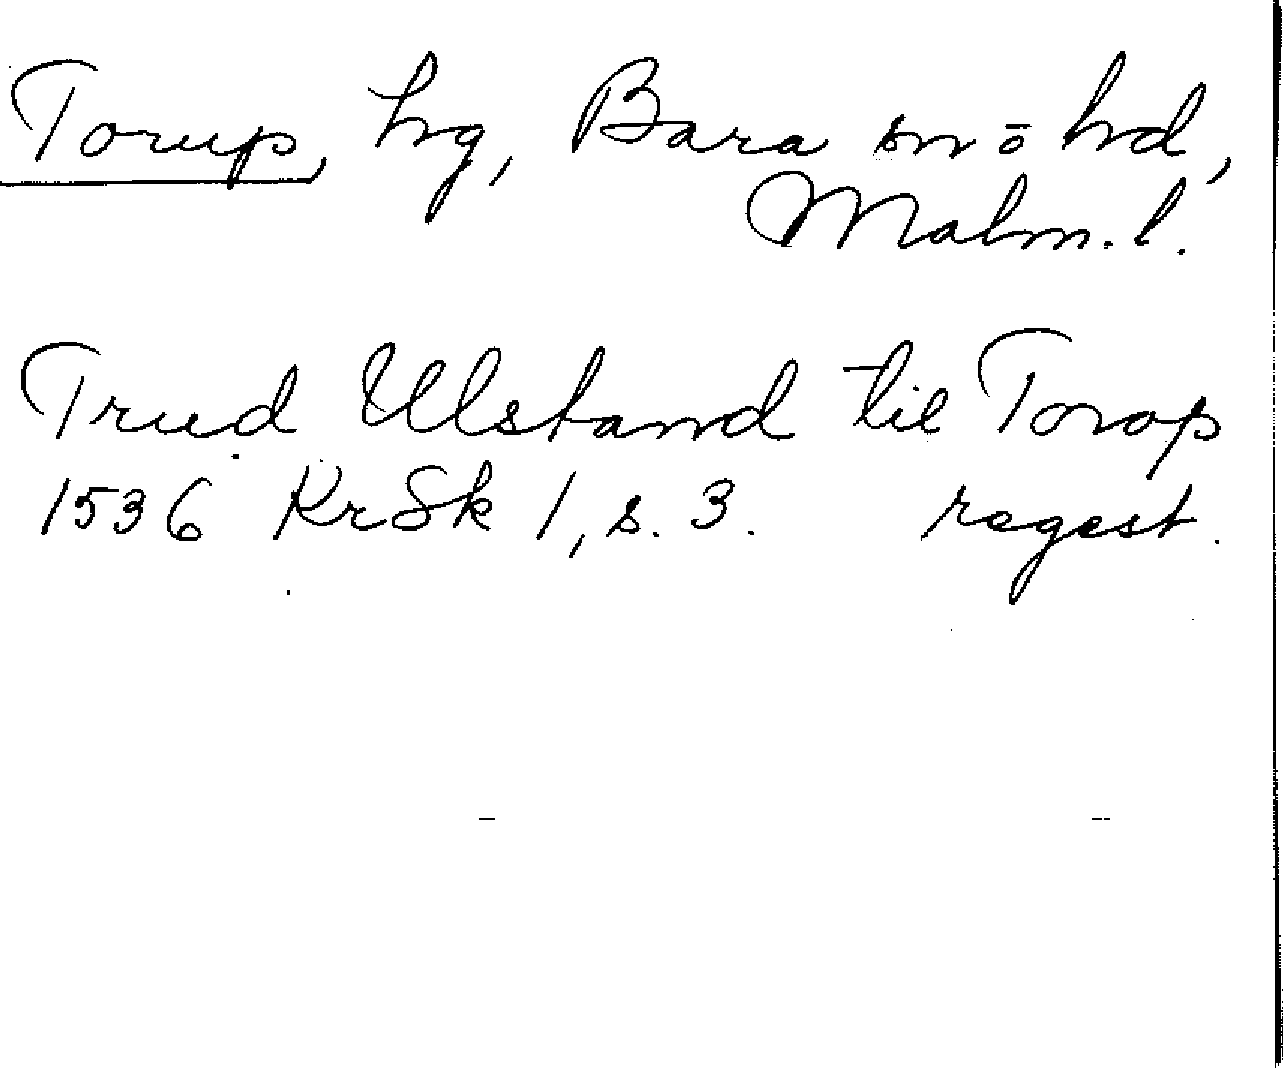 Torup, hg, Bara sn o hd,
Malm. l.
Trud Ulstand til Torop
1536 KrSk 1, s. 3. regest.